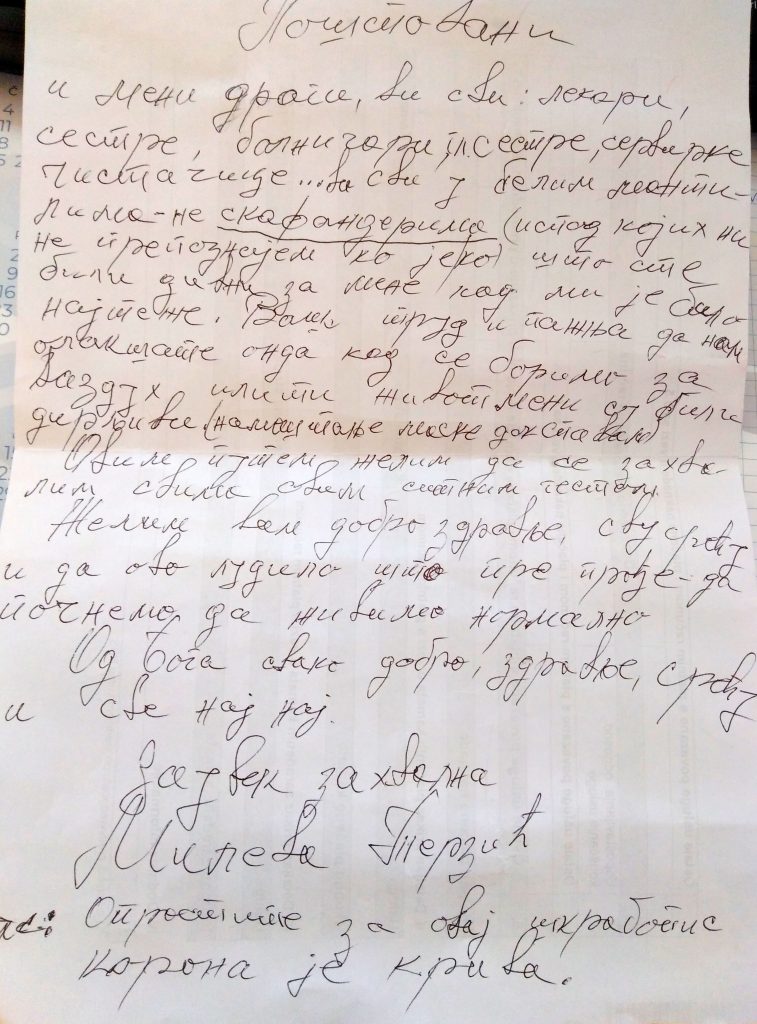 Поштовани
и мени драги, ви сви: лекари,
сестре, болничари, гл. сестре, сервирке
чистачице... ви сви у белим манти-
лима-не скафандерима (испод којих ни
не препознајем ко је ко) што сте
били дивни за мене кад ми је било
најтеже. Ваш труд и пажња да нам
олакшате онда кад се боримо за
ваздух илити живот мени су били
дирљиви (намештање маске док спавам)
Овим путем желим да се захва-
лим свима свим ситним честом.
Желим вам добро здравље, сву срећу
и да ово лудило што пре прође-да
почнемо да живимо нормално
Од Бога свако добро, здравље, срећу
и све нај нај.
Заувек захвална
Милева Терзић
пс: Опростите за овај шкработис
Корона је крива.